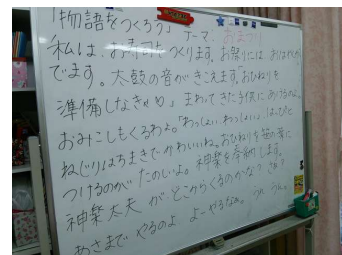 「物語をつくろう」 テーマ．おまつり
私は、お寿司をつくります。お祭りには、おはやしが
でます。太鼓の音がきこえます。「おひねりを
準備しなきゃ」まわってきた子供にあげるのよ。
おみこしもくるわよ。「わっしょい、わっしょい」はっぴと
ねじりはちまきでかわいいね。おひねりを笹の葉に
つけるのがたのしいよ。神楽を奉納します。
神楽太夫がどこからくるのかな？
あさまでやるのよ よーやるなぁ。うん うん。